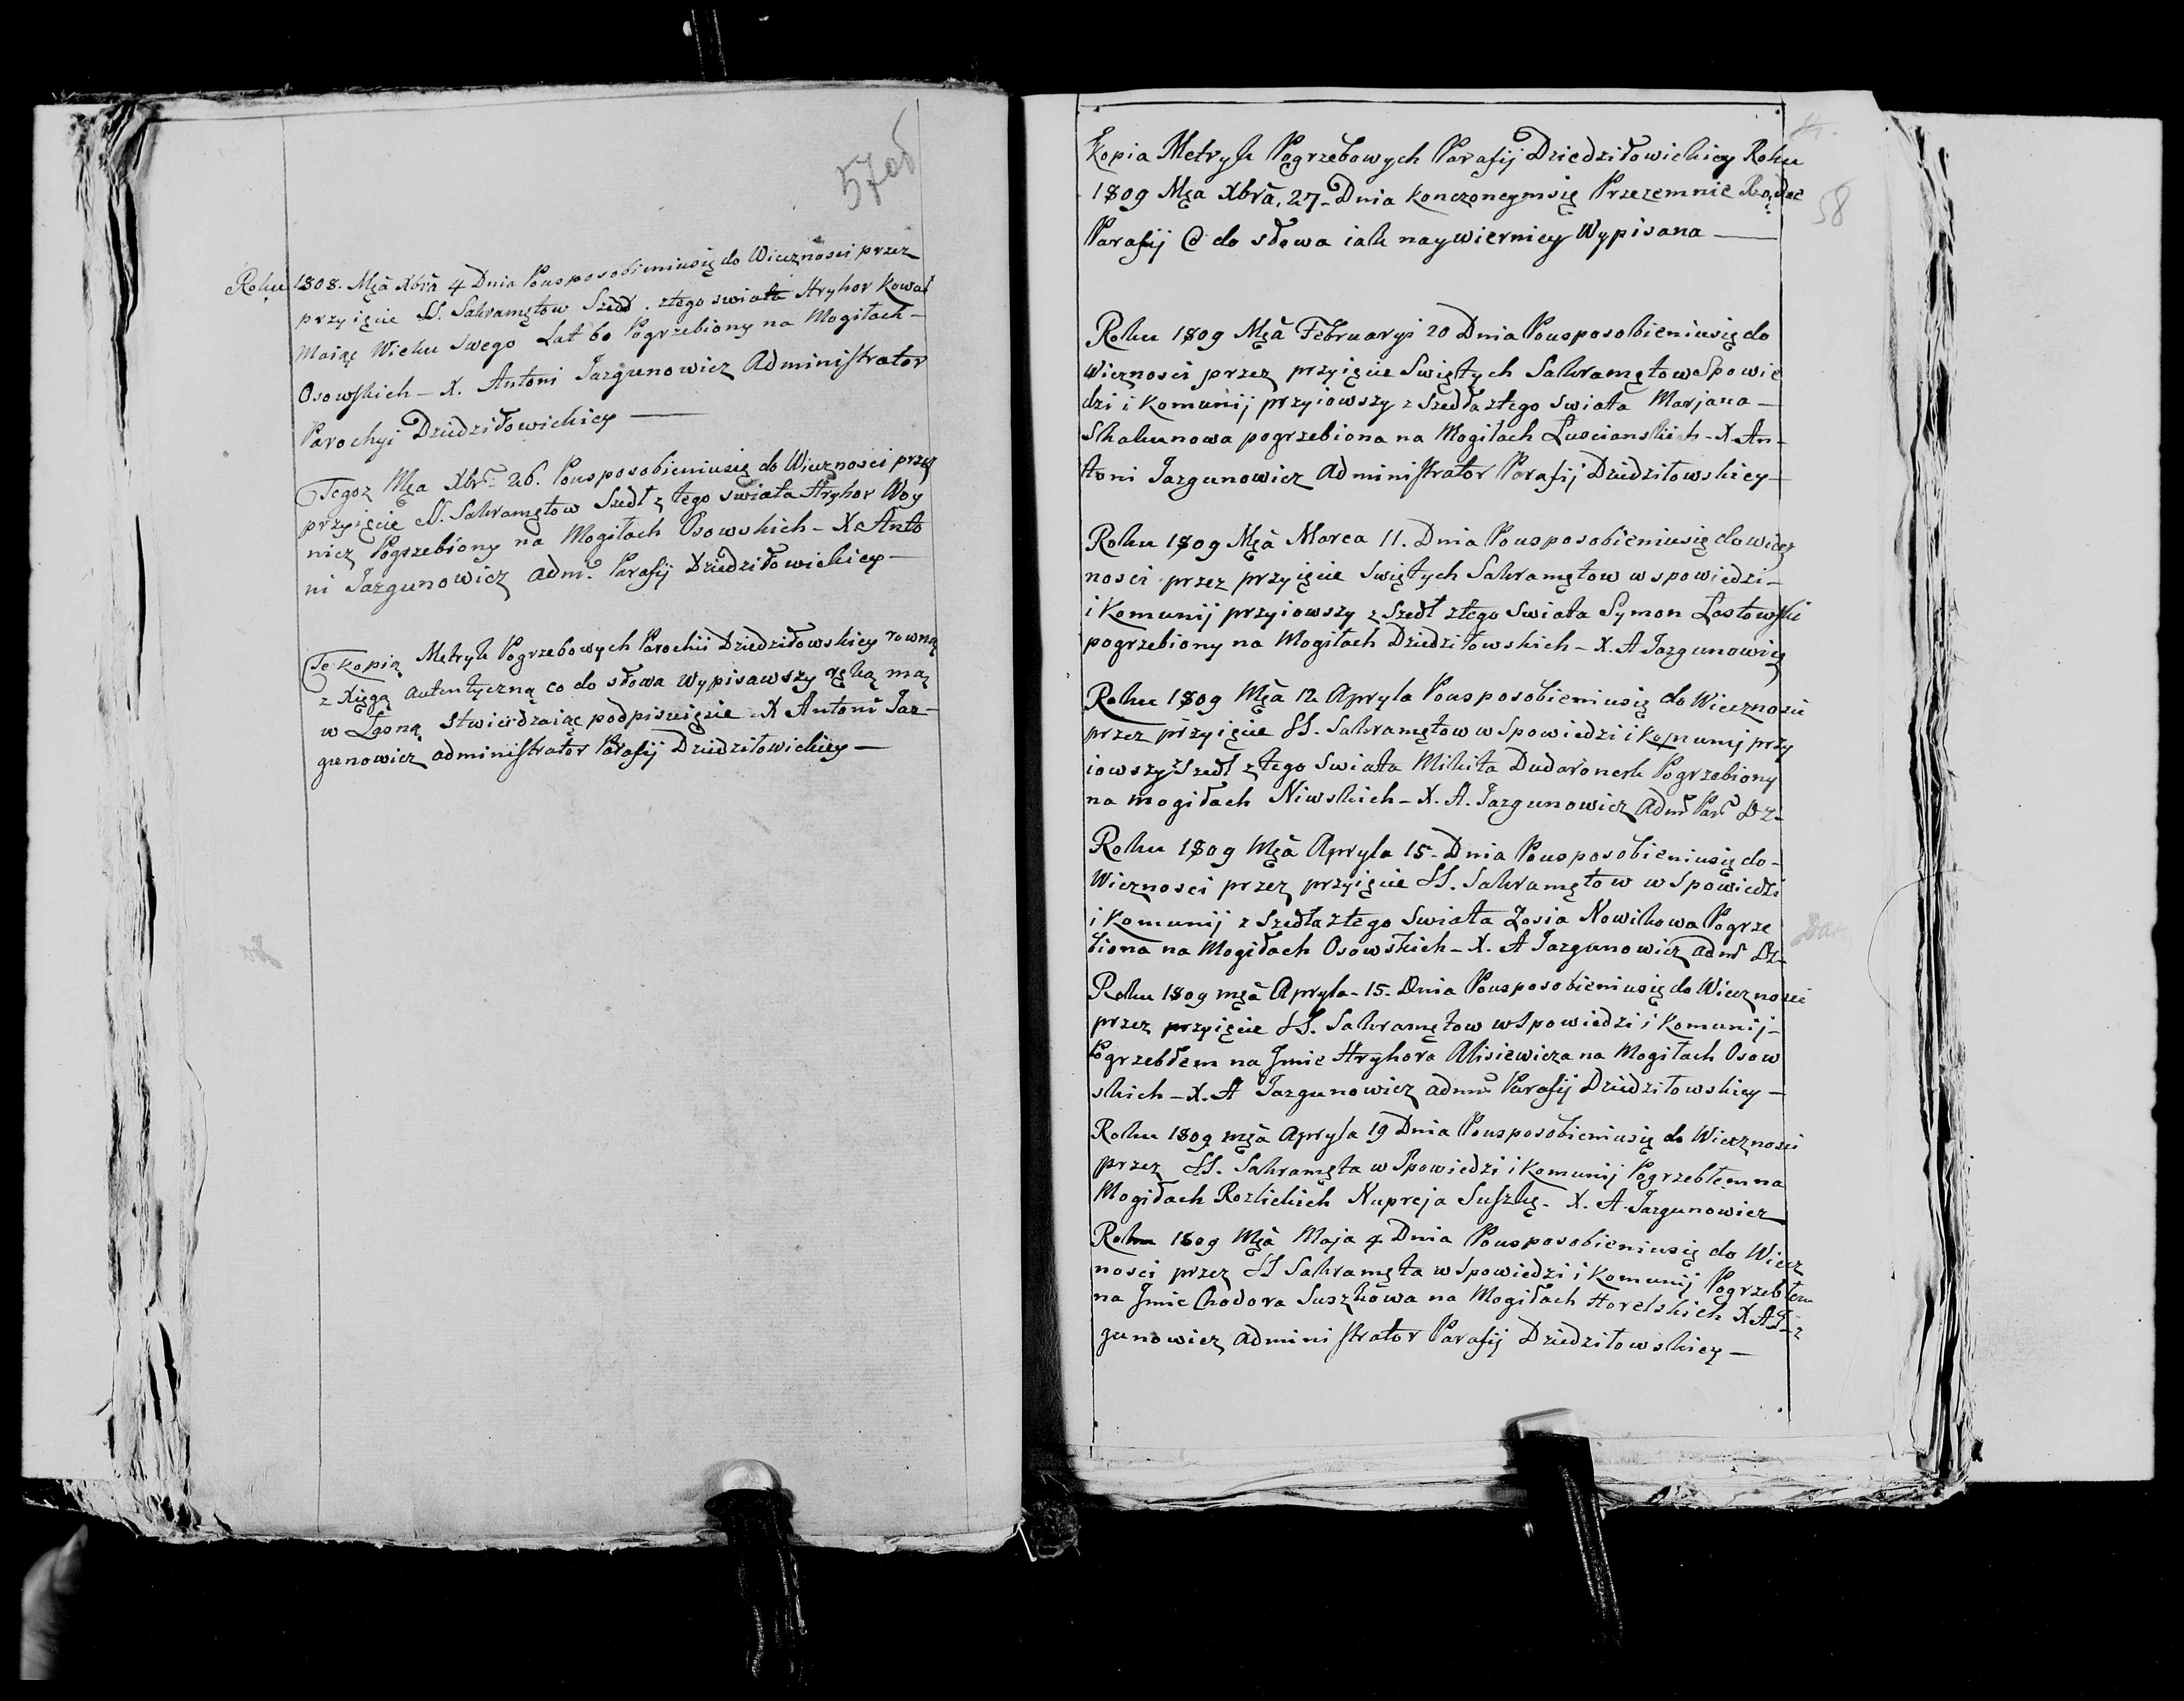 57об
Roku 1808. Mca Xbra 4 Dnia Pousposobieniusię do Wiecznosci przez
przyięcie SS. Sakramętow Szedł ztego swiata Hryhor Kowal
Maiąc Wieku Swego Lat 60 Pogrzebiony na Mogiłach -
Osowskich - X. Antoni Jazgunowicz Administrator
Parochyi Dziedziłowickiey —
Tegoz Mca Xbra 26. Pousposobieniusię do Wiecznosci przez
przyięcie SS. Sakramętow Szedł z tego swiata Hryhor Woy
nicz Pogrzebiony na Mogiłach Osowskich - X. Anto
ni Jazgunowicz Adm. Parafij Dziedziłowickiey -
Te kopią Metryk Pogrzebowych Parochii Dziedziłowskiey rowną
z Xięgą autentyczną co do słowa wypisawszy ręką mą
własną stwierdzaiąc podpisuięsie X Antoni Jaz-
gunowicz administrator Parafij Dziedziłowickiey —
58
Kopia Metryk Pogrzebowych Parafij Dziedziłowickiey Roku
1809 Mca Xbra, 27 - Dnia konczoneymsię Przezemnie Rządce
Parafij @ do słowa iak naywierniey Wypisana —
Roku 1809 Mca Februaryi 20 Dnia Pousposobieniusię do
Wicznosci przez przyięcie Swiętych Sakramętow Spowie
dzi i Komunij przyiowszy z Szedła ztego swiata Marjana -
Skakunowa pogrzebiona na Mogiłach Luscianskich - X. An-
toni Jazgunowicz Administrator Parafij Dziedziłowskiey -
Roku 1809 Mca Marca 11. Dnia Pousposobieniusię do wiecz
nosci przez przyięcie Swiętych Sakramętow w spowiedzi -
i Komunij przyiowszy z Szedł ztego Swiata Symon Lastowski
pogrzebiony na Mogiłach Dziedziłowskich - X. A Jazgunowicz
Roku 1809 Mca 12 Apryla Pousposobieniusię do Wiecznosci
przez przyięcie SS. Sakramętow w Spowiedzi i Komunij przy
iowszy z Szedł z tego Swiata Mikita Dudaronek Pogrzebiony
na mogiłach Niwskich - X. A. Jazgunowicz Adm Par Dz -
Roku 1809 Mca Apryla 15 - Dnia Pousposobieniusię do -
Wicznosci przez przyięcie SS. Sakramętow w Spowiedzi
i Komunij z Szedła ztego Swiata Zosia Nowikowa Pogrze
biona na Mogiłach Osowskich - X. A Jazgunowicz adm Dz -
Roku 1809 mca Apryla - 15 - Dnia Pousposobieniusię do Wiecznosci
przez przyięcie SS. Sakramętow w Spowiedzi i Komunij -
Pogrzebłem na Jmie Hryhora Alisiewicza na Mogiłach Osow
skich - X. A Jazgunowicz adm Parafij Dziedziłowskiey -
Roku 1809 mca Apryla 19 Dnia Pousposobieniusię do Wiecznosci
przez SS. Sakramęta w Spowiedzi i Komunij Pogrzebłem na
Mogiłach Rozlickich Kupreja Suszkę - X. A. Jazgunowicz
Roku 1809 Mca Maja 4 Dnia Pousposobieniusię do Wiecz
nosci przez SS Sakramęta w Spowiedzi i Komunij Pogrzebłem
na Jmie Chodora Suszkowa na Mogiłach Horelskich X A Jaz
gunowicz administrator Parafij Dziedziłowskiey —